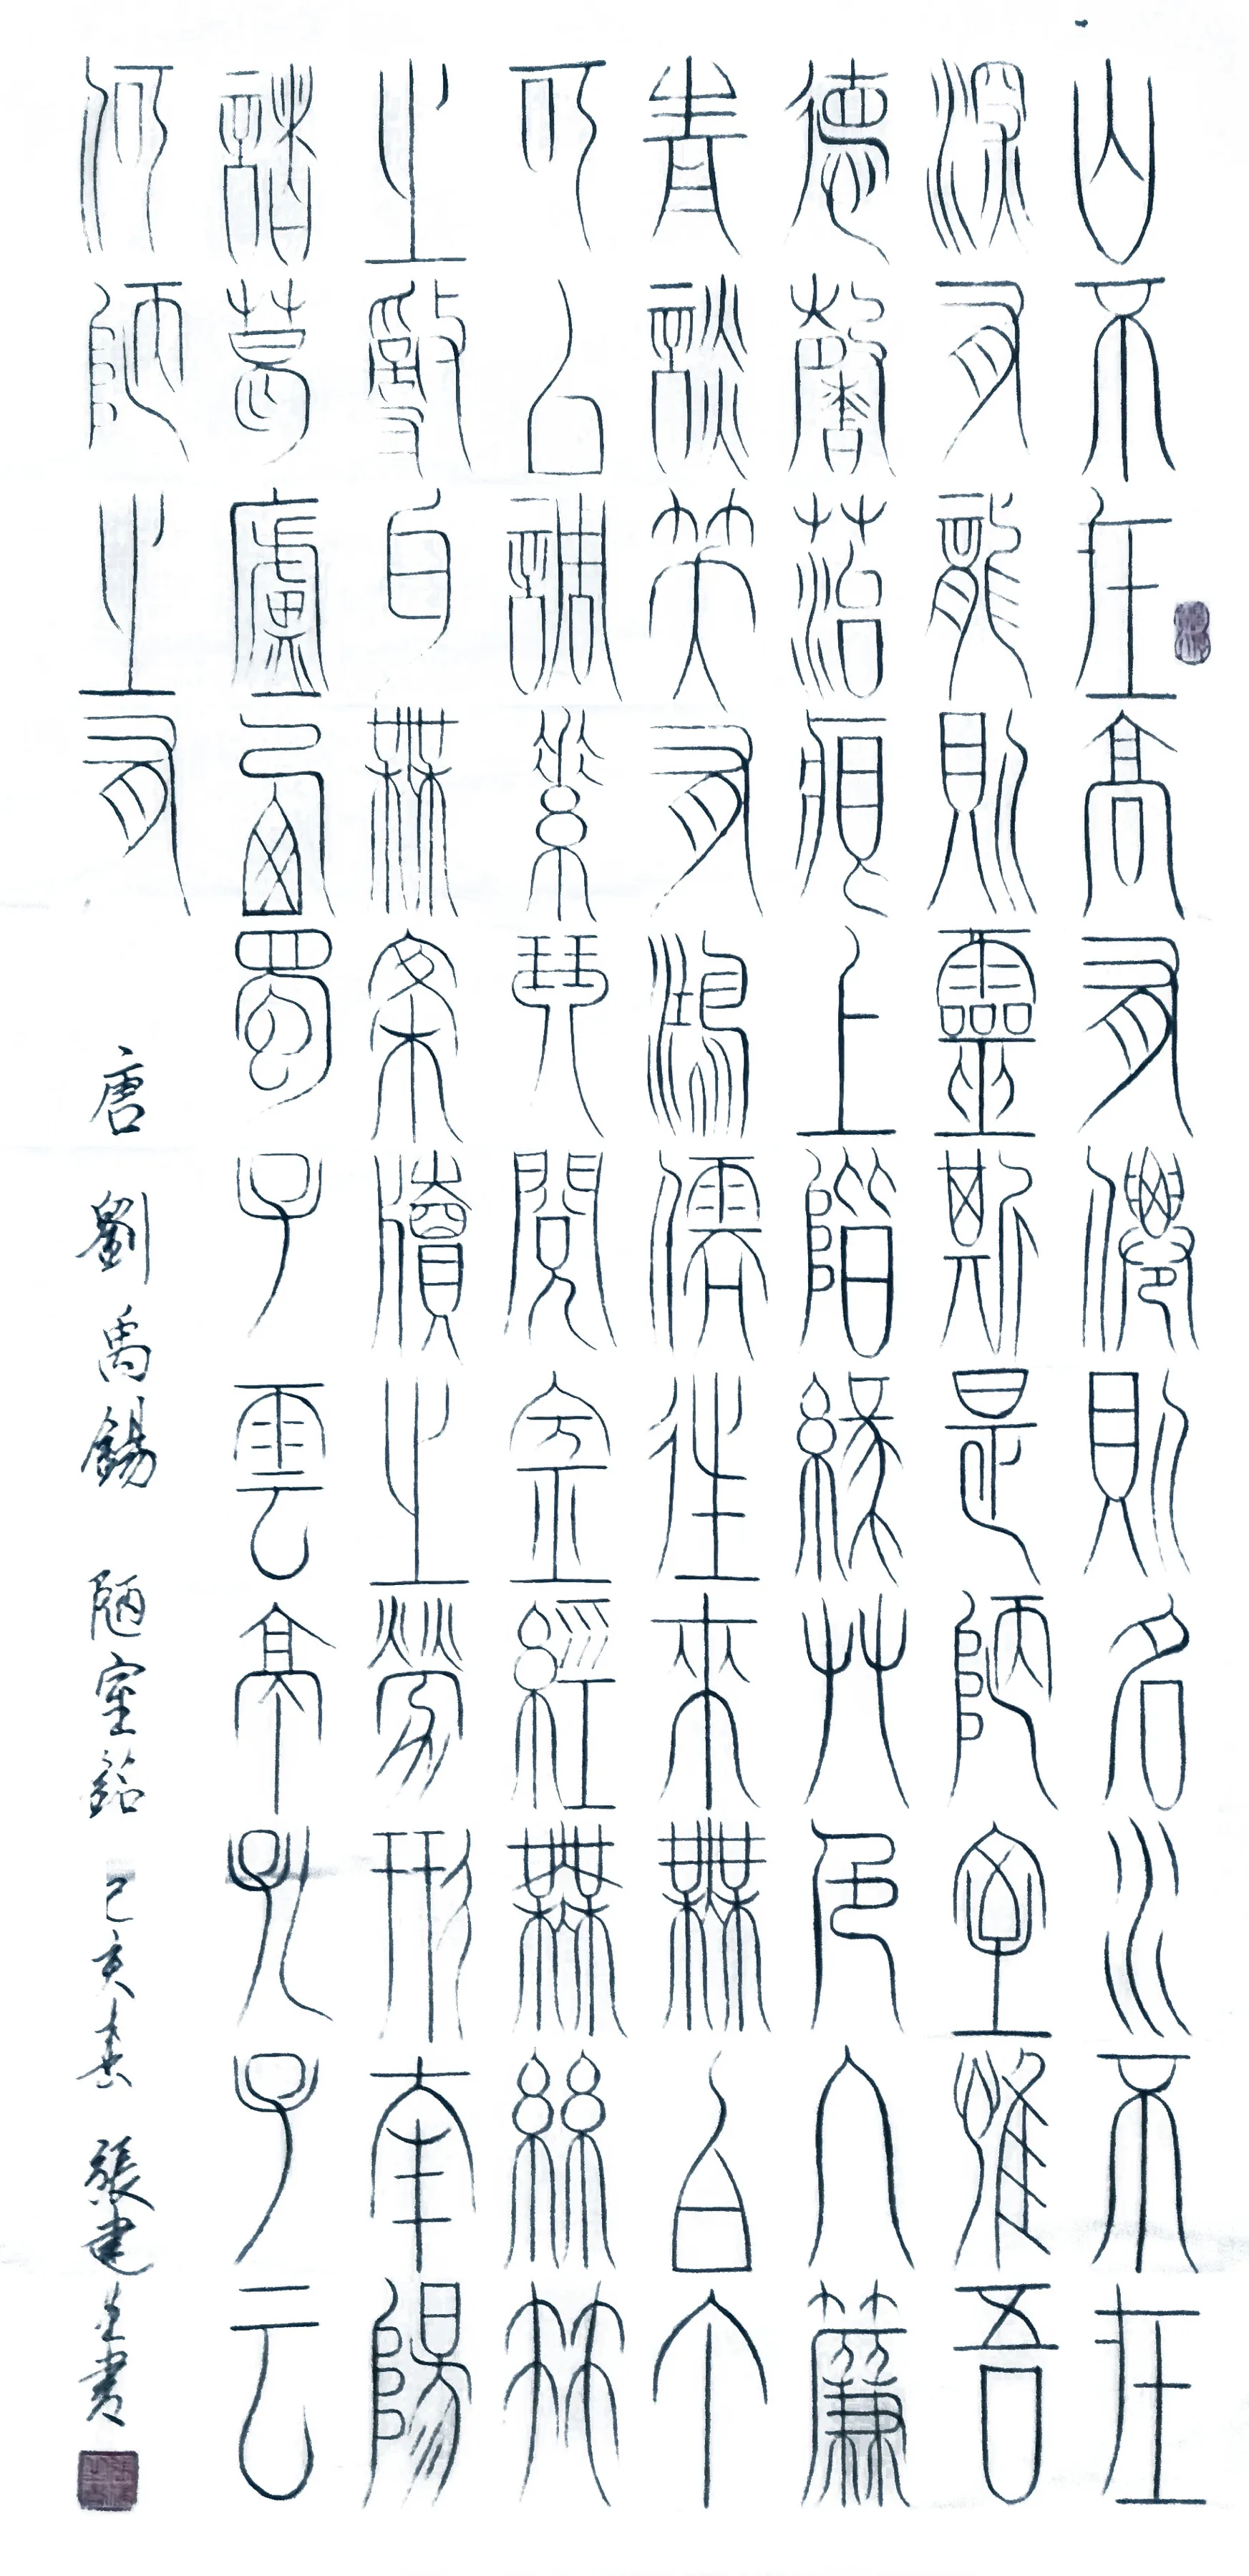 山不在高有僊則名水不在
深有龍則靈斯是陋室惟吾
德馨苔痕上階綠艸色入簾
青談笑有鴻儒往來無白丁
可以調素琴閱金經無絲竹
之亂耳無案牘之勞形南陽
諸葛廬西蜀子雲亭孔子云
何陋之有 唐 劉禹錫 陋室銘 己亥春 張建生書